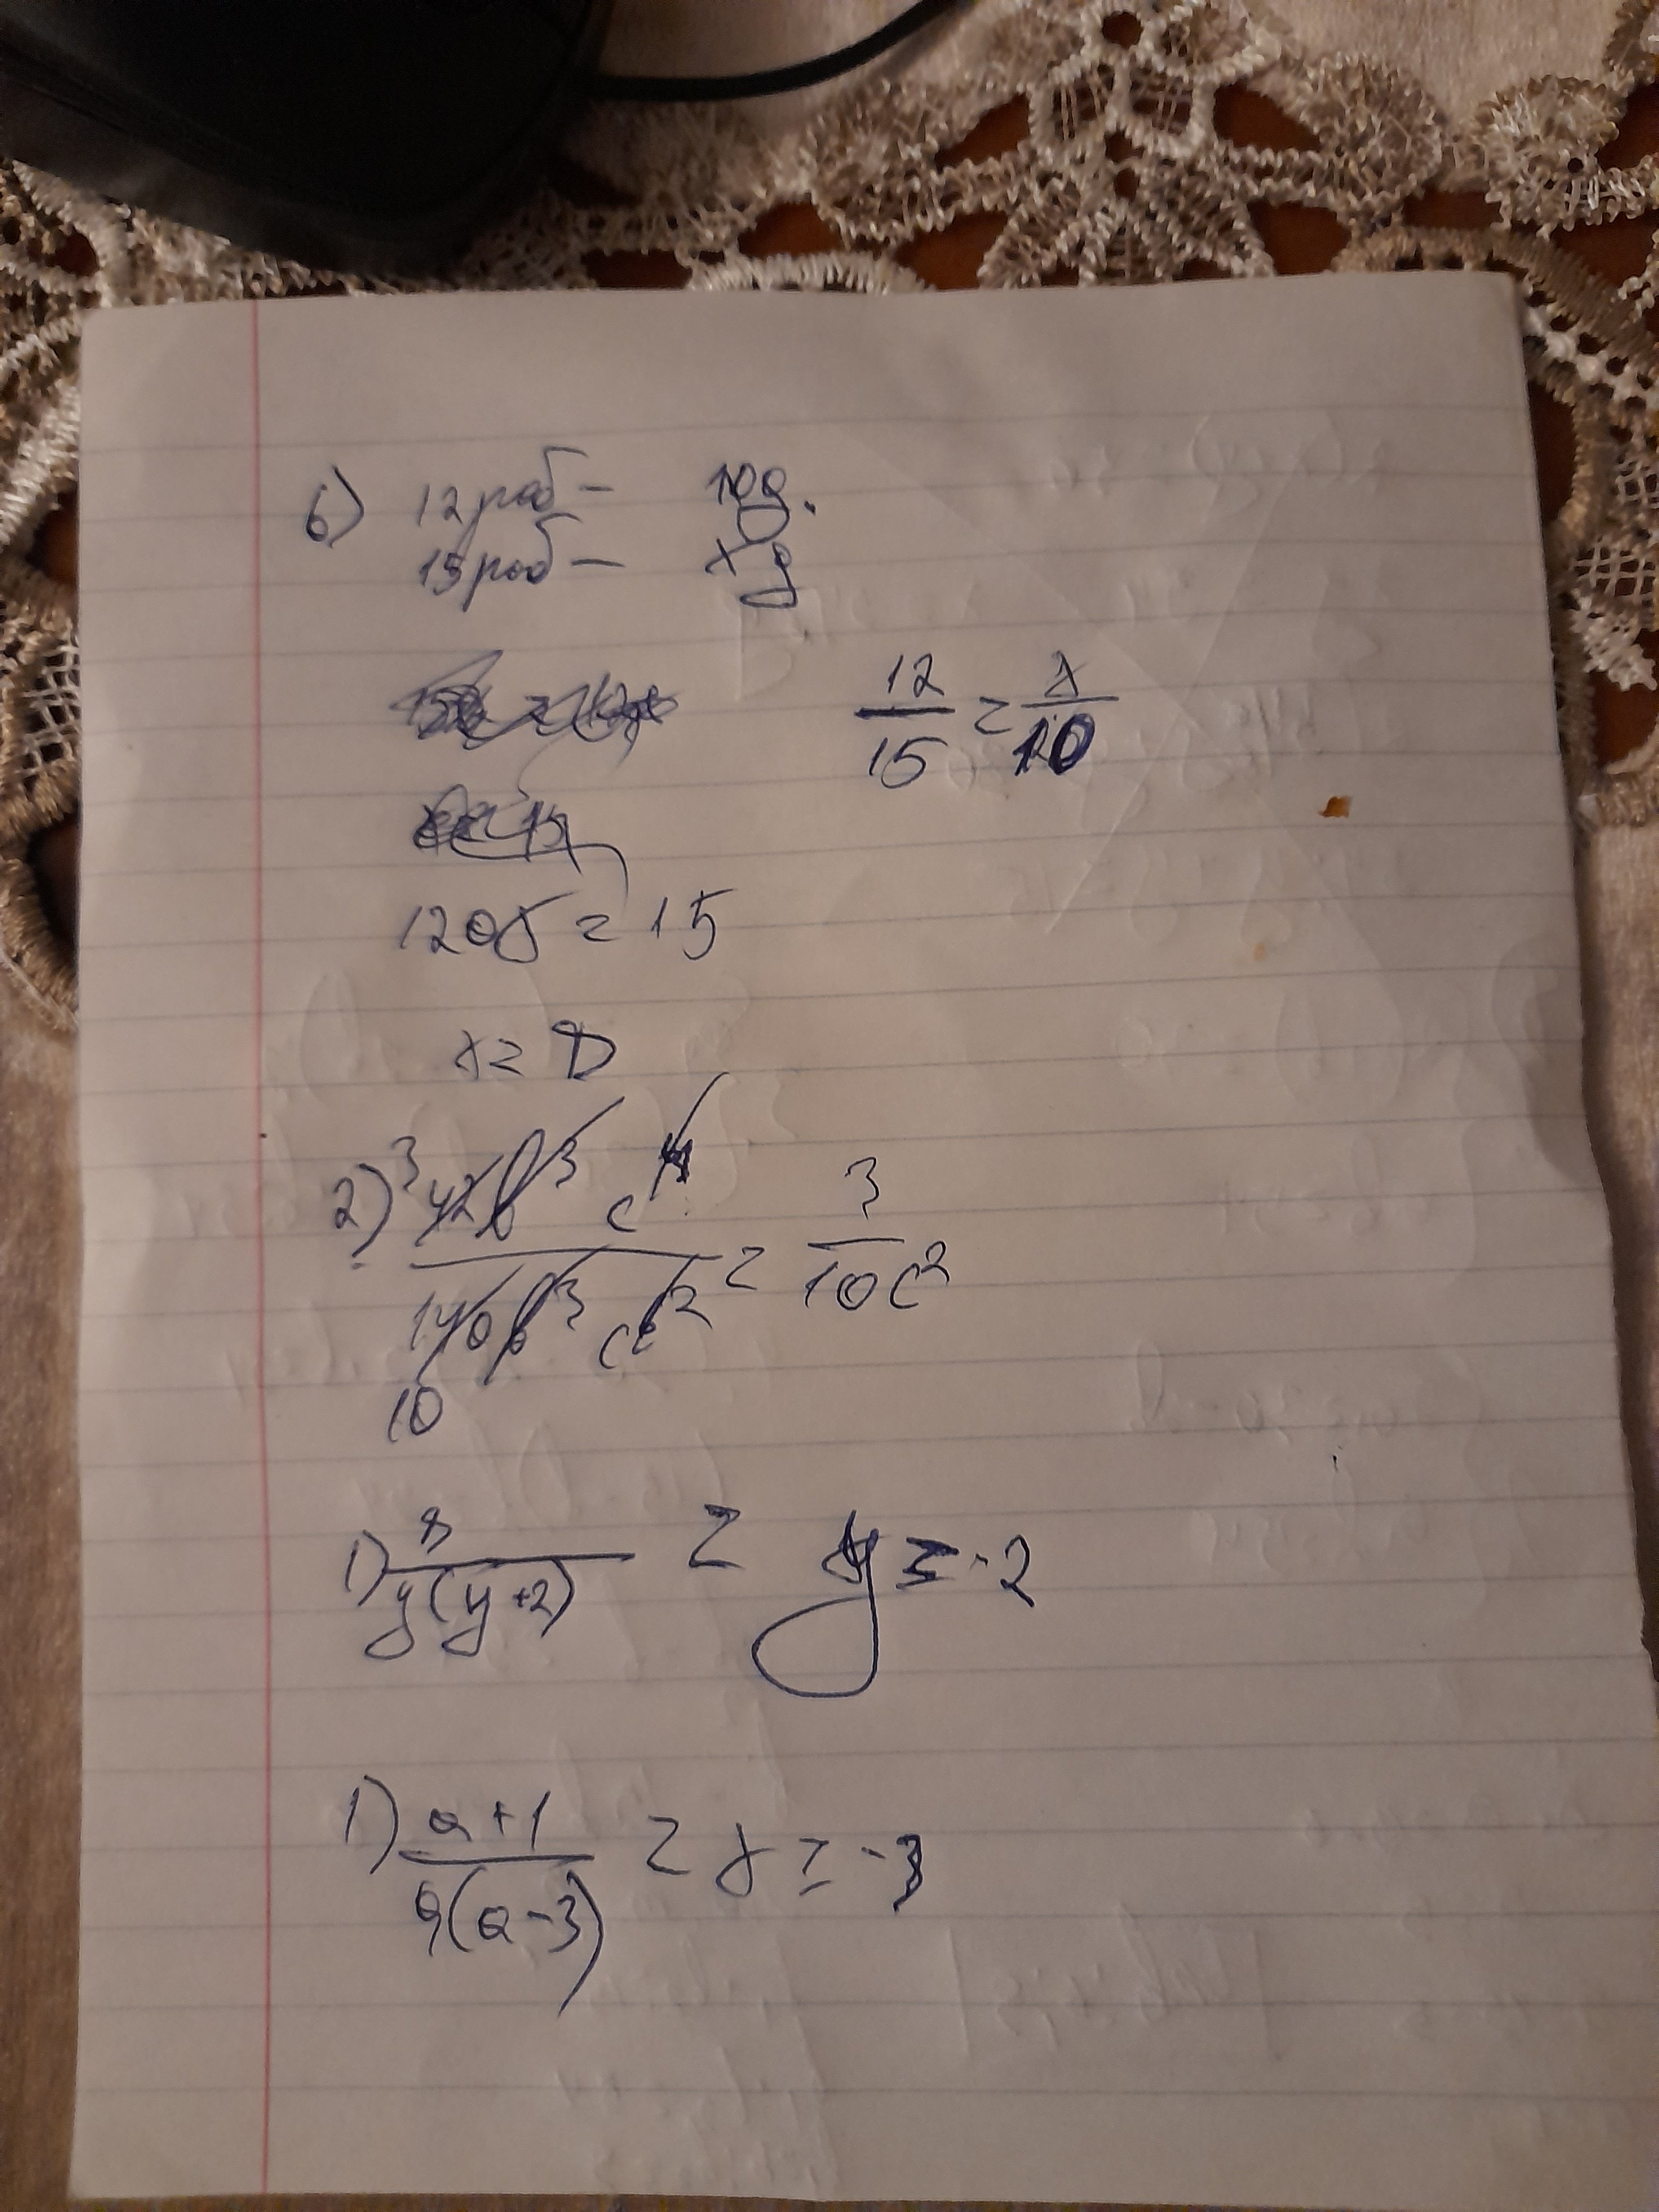 6) 12 роб - 10 д.
15 роб - x д
12/15 = x/10
120x = 15
x = 8
2) 3 42b³ c⁴ / 140b³ c² = 3/10c²
10
1) 8/y(y+2) = y = -2
1) a+1/a(a-3) = y = -3